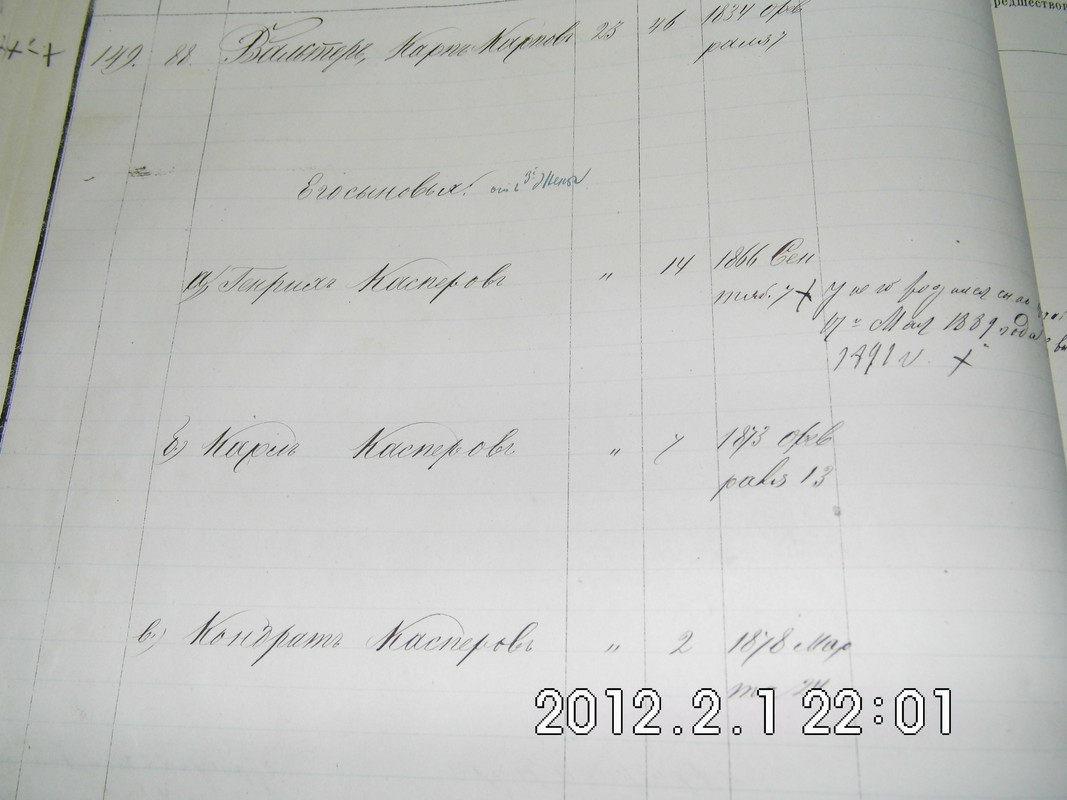 редшество
149. 88 Вальтеръ, Карлъ Карловъ 23 46 1834 фев
раля 7
Его сыновья: отъ 3й жены
а) Генрихъ Касперовъ " 14 1866 Сен
тяб. 7 + У него родился сынъ
17го Мая 1889 года
1891 г. +
б) Карлъ Касперовъ " 7 1873 фев
раля 13
в) Кондратъ Касперовъ " 2 1878 Мар
та 24
2012.2.1 22:01